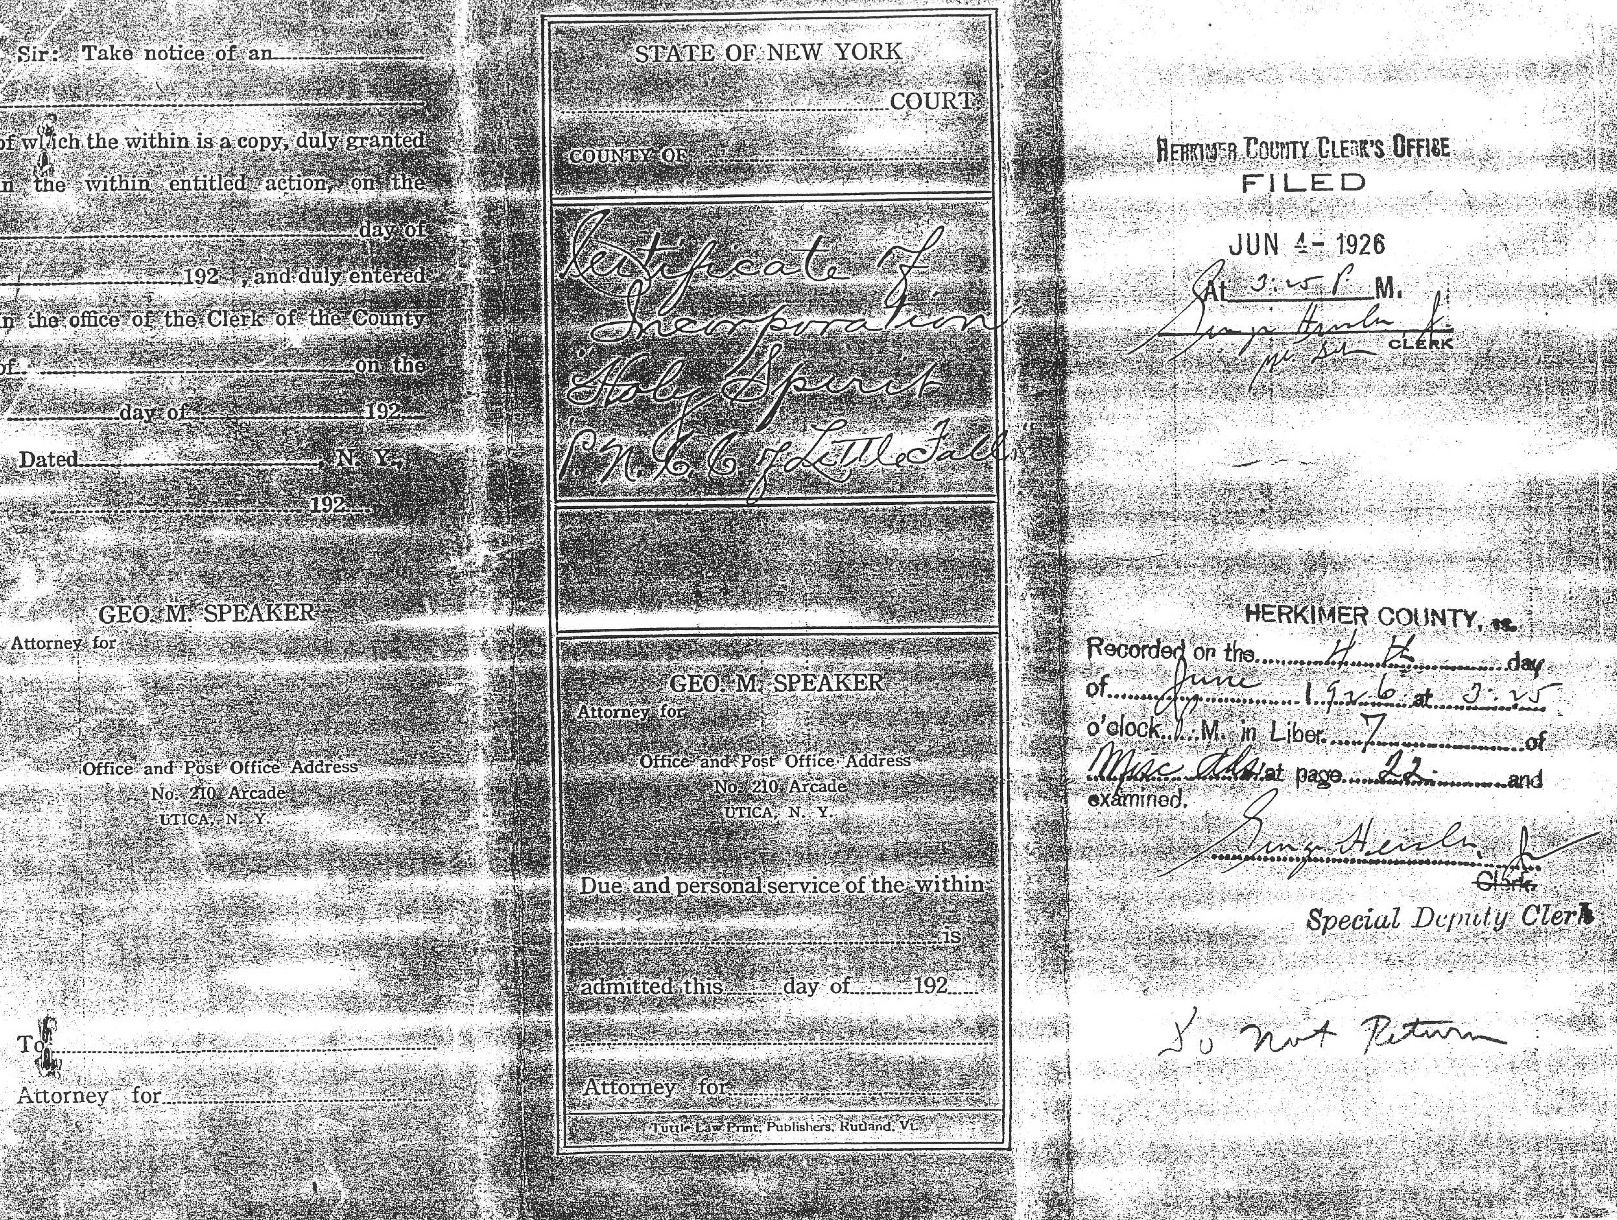 Sir: Take notice of an
of which the within is a copy, duly granted
in the within entitled action, on the
day of
192 , and duly entered
in the office of the Clerk of the County
of on the
day of 192
Dated , N. Y.,
192
GEO. M. SPEAKER
Attorney for
Office and Post Office Address
No. 210 Arcade
UTICA, N. Y.
To
Attorney for
STATE OF NEW YORK
COURT
COUNTY OF
Certificate of
Incorporation
"Holy Spirit
P. N. C. C. of Little Falls"
GEO. M. SPEAKER
Attorney for
Office and Post Office Address
No. 210 Arcade
UTICA, N. Y.
Due and personal service of the within
is
admitted this day of 192
Attorney for
Tuttle Law Print, Publishers, Rutland, Vt.
HERKIMER COUNTY CLERK'S OFFICE
FILED
JUN 4- 1926
At 3:25 P. M.
CLERK
HERKIMER COUNTY, ss.
Recorded on the 4th day
of June 1926 at 3:25
o'clock P. M. in Liber 7 of
Misc Rds. at page 22 and
examined.
Clerk.
Special Deputy Clerk
Do Not Return